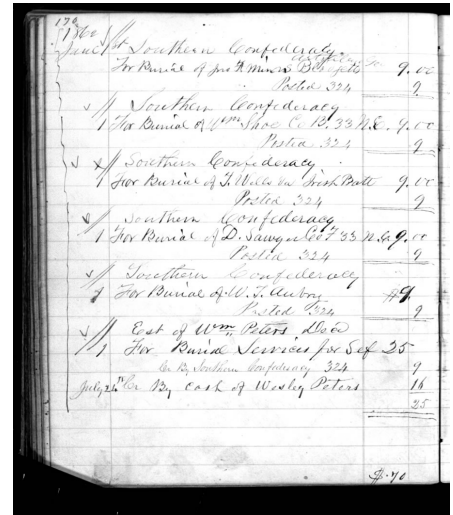 170
June 1st Southern Confederacy
For Burial of Jno A Minor 9.00
Posted 324 9
Southern Confederacy
1 For Burial of Wm Shoe Co B. 33 N.C. 9.00
Posted 324 9
Southern Confederacy
1 For Burial of J. Wells Irish Batt 9.00
Posted 324 9
Southern Confederacy
1 For Burial of D. Sawyer Co F 33 N.C. 9.00
Posted 324 9
Southern Confederacy
1 For Burial of W. J. Aubry $9
Posted 324 9
Est of Wm Peters Dec'd
1 For Burial Services for Self 25
Cr By Southern Confederacy 324 9
July 26th Cr By Cash of Wesley Peters 16
25
$.70